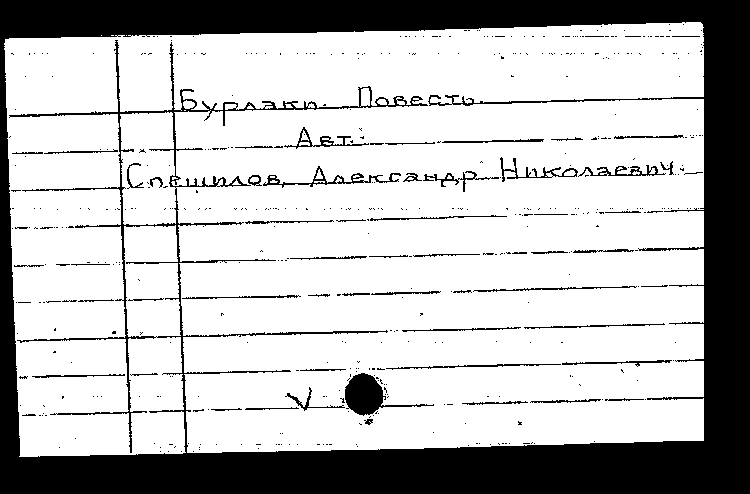 Бурлаки. Повесть.
Авт.:
Спешилов, Александр Николаевич.